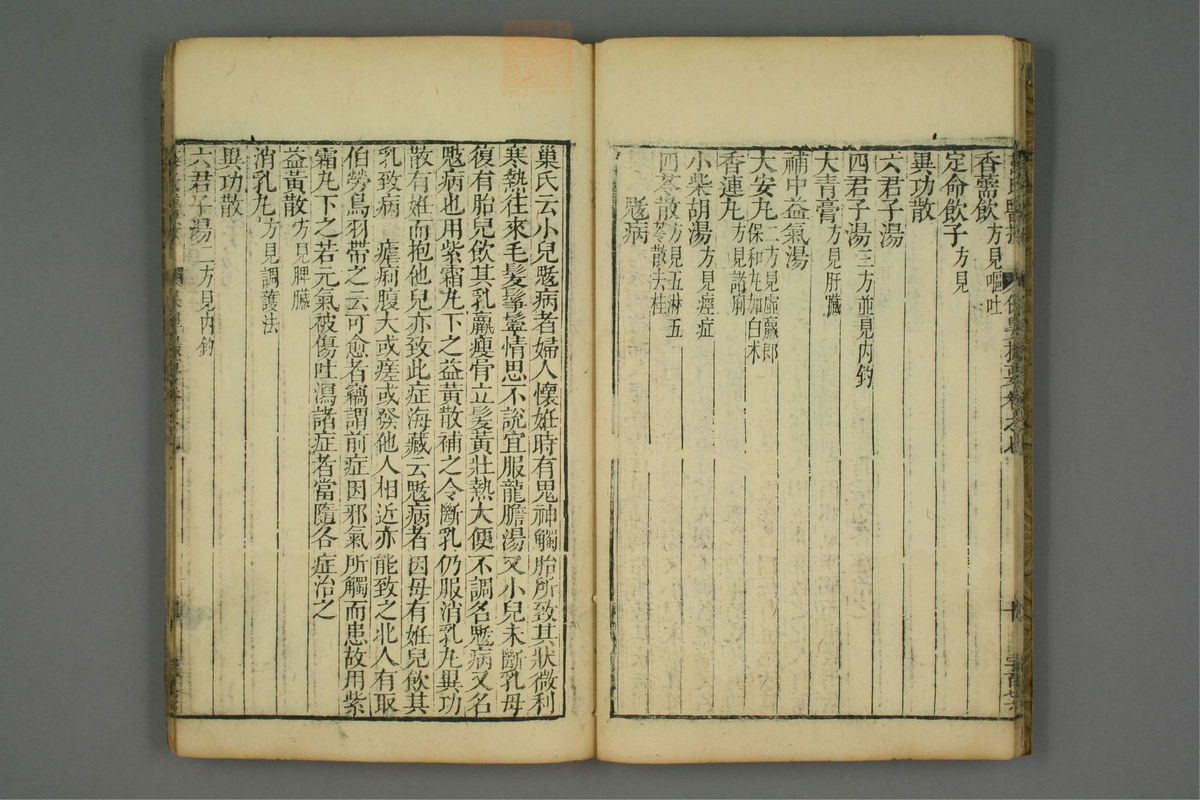 香需飲方見嘔吐
定命飲子方見
異功散
六君子湯
四君子湯三方並見内釣
大青膏方見肝臟
補中益氣湯
大安丸二方見虛羸即
保和丸加白术
香連丸方見諸痢
小柴胡湯方見痙症
四苓散方見五淋五
苓散去桂
魃病
巢氏云小兒魃病者婦人懷姙時有鬼神觸胎所致其狀微利
寒熱往來毛髮鬡鬤情思不說宜服龍膽湯又小兒未斷乳母
復有胎兒飲其乳羸瘦骨立髮黃壯熱大便不調名魃病又名
魃病也用紫霜丸下之益黃散補之令斷乳仍服消乳丸異功
散有姙而抱他兒亦致此症海藏云魃病者因母有姙兒飲其
乳致病瘧痢腹大或瘥或發他人相近亦能致之北人有取
伯勞鳥羽帶之云可愈者竊謂前症因邪氣所觸而患故用紫
霜丸下之若元氣被傷吐瀉諸症者當隨各症治之
益黃散方見脾臟
消乳丸方見調護法
異功散
六君子湯二方見内釣